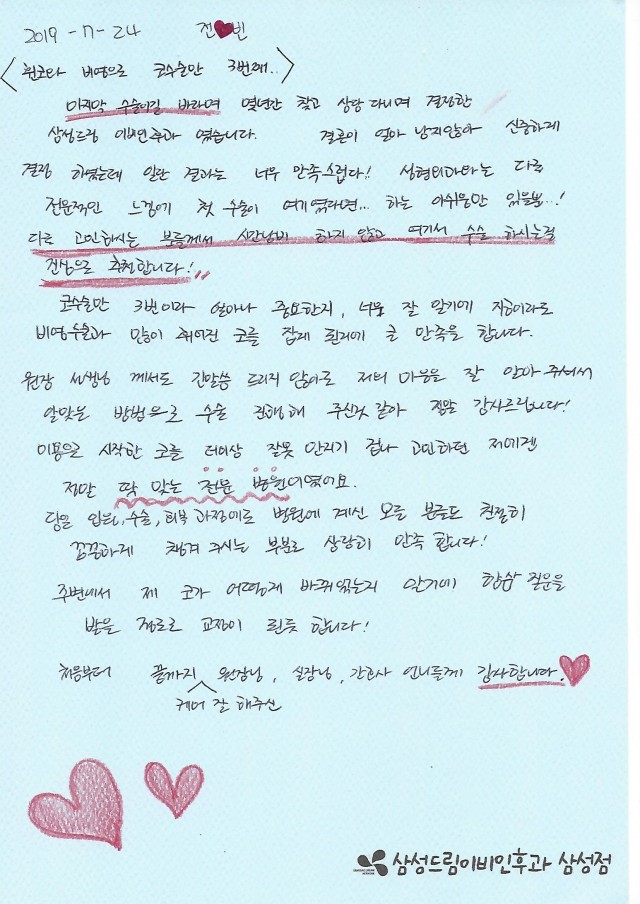 2019-7-24 전♥빈
<휜코와 비염으로 코수술만 3번째..>
마지막 수술이길 바라며 몇년간 찾고 상담 다니며 결정한
삼성드림 이비인후과 였습니다. 결혼이 얼마 남지않아 신중하게
결정 하였는데 일단 결과는 너무 만족스럽다! 성형외과와는 다른
전문적인 느낌에 첫 수술이 여기였다면... 하는 아쉬움만 있을뿐...!
다른 고민하시는 분들께서 시간낭비 하지 않고 여기서 수술 하시는걸
진심으로 추천합니다!
코수술만 3번이라 얼마나 중요한지, 너무 잘 알기에 지금이라도
비염수술과 많이 휘어진 코를 잡게 된거에 큰 만족을 합니다.
원장 선생님 께서도 긴말씀 드리지 않아도 저의 마음을 잘 알아 주셔서
알맞은 방법으로 수술 진행해 주신것 같아 정말 감사드립니다!
미용으로 시작한 코를 더이상 잘못 만지기 겁나 고민하던 저에겐
정말 딱 맞는 전문 병원이였어요.
당일 입원, 수술, 회복 과정에도 병원에 계신 모든 분들도 친절히
꼼꼼하게 챙겨 주시는 부분도 상당히 만족 합니다!
주변에서 제 코가 어떻게 바뀌었는지 알기에 항상 질문을
받을 정도로 교정이 된듯 합니다!
처음부터 끝까지 케어 잘 해주신 원장님, 실장님, 간호사 언니들께 감사합니다.♥
삼성드림이비인후과 삼성점